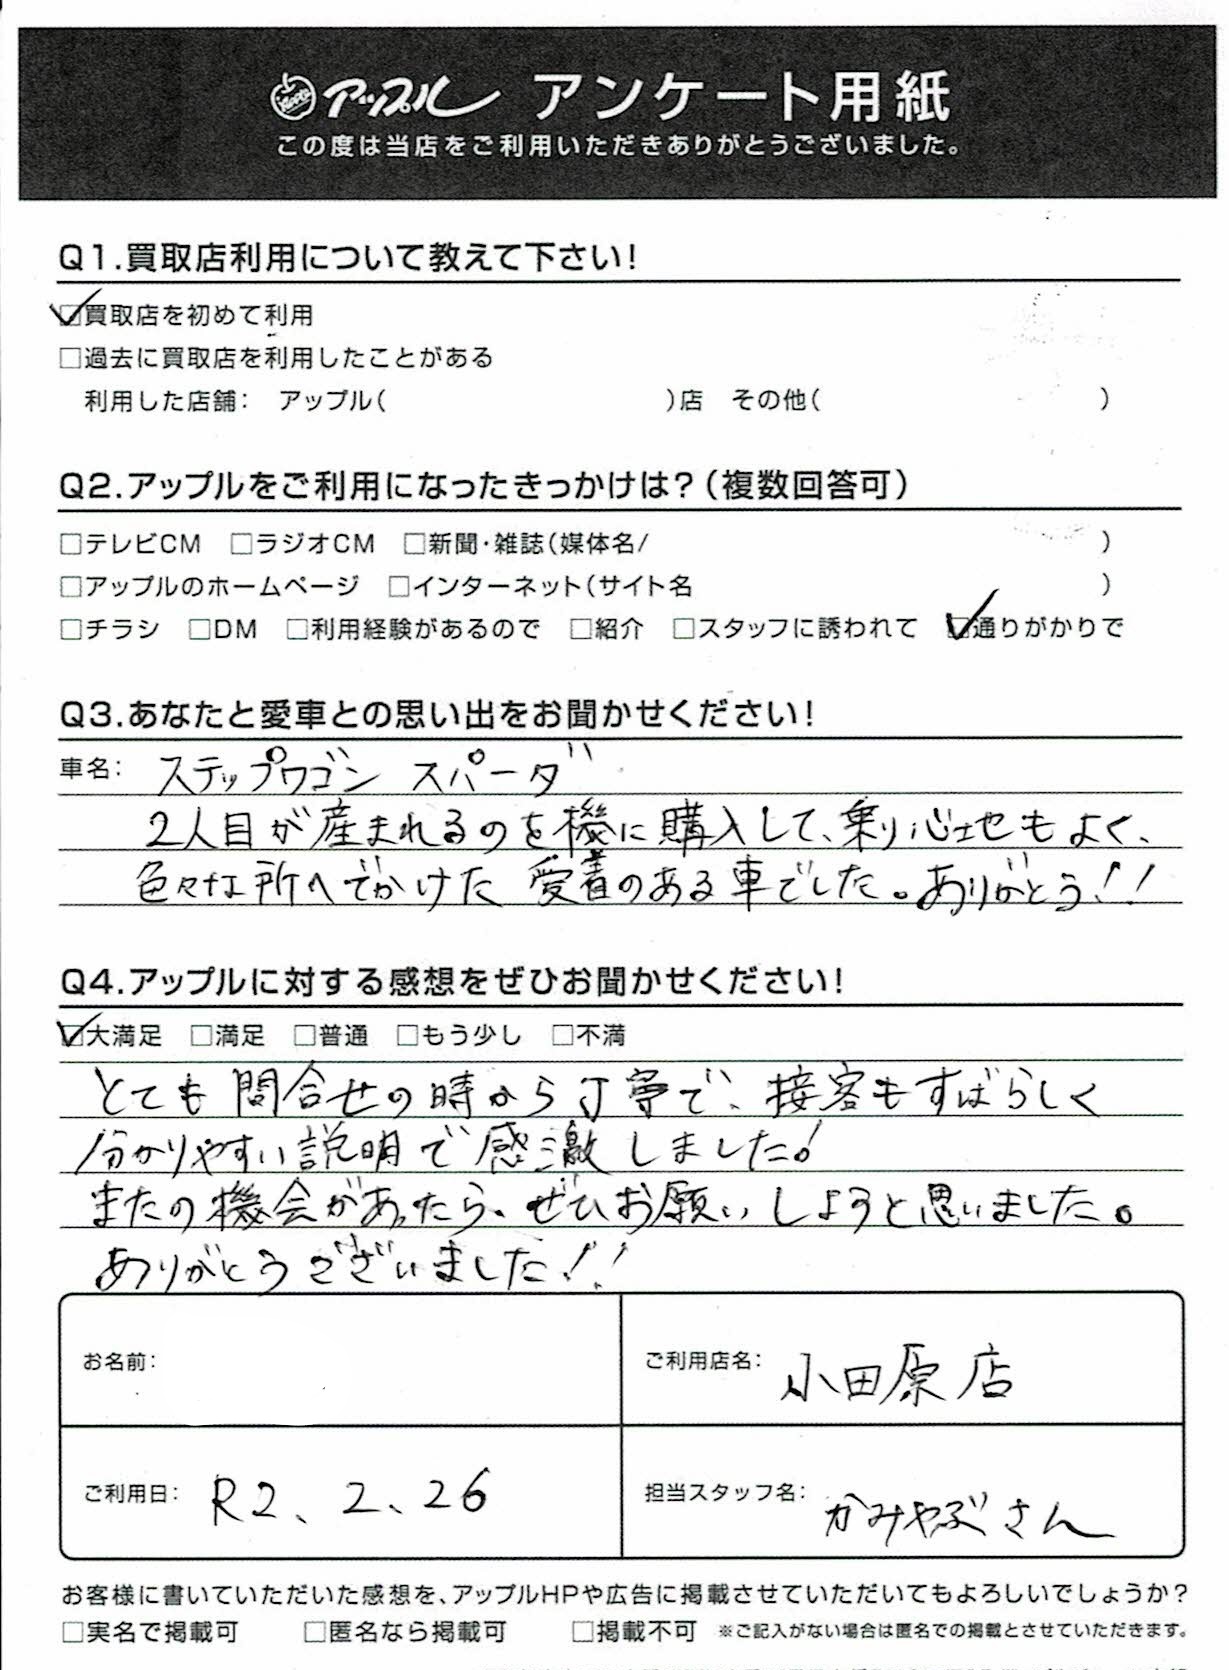 アップル アンケート用紙
この度は当店をご利用いただきありがとうございました。
Q1.買取店利用について教えて下さい!
☑買取店を初めて利用
□過去に買取店を利用したことがある
利用した店舗: アップル( )店 その他( )
Q2.アップルをご利用になったきっかけは?(複数回答可)
□テレビCM □ラジオCM □新聞・雑誌(媒体名/ )
□アップルのホームページ □インターネット(サイト名 )
□チラシ □DM □利用経験があるので □紹介 □スタッフに誘われて ☑通りがかりで
Q3.あなたと愛車との思い出をお聞かせください!
車名: ステップワゴン スパーダ
2人目が産まれるのを機に購入して、乗り心地もよく、
色々な所へでかけた 愛着のある車でした。ありがとう!!
Q4.アップルに対する感想をぜひお聞かせください!
☑大満足 □満足 □普通 □もう少し □不満
とても問合せの時から丁寧で、接客もすばらしく
分かりやすい説明で感激しました!
またの機会があったら、ぜひお願いしようと思いました。
ありがとうございました!!
お名前:
ご利用店名: 小田原店
ご利用日: R2、2、26
担当スタッフ名: かみやぶさん
お客様に書いていただいた感想を、アップルHPや広告に掲載させていただいてもよろしいでしょうか?
□実名で掲載可 □匿名なら掲載可 □掲載不可 ※ご記入がない場合は匿名での掲載とさせていただきます。